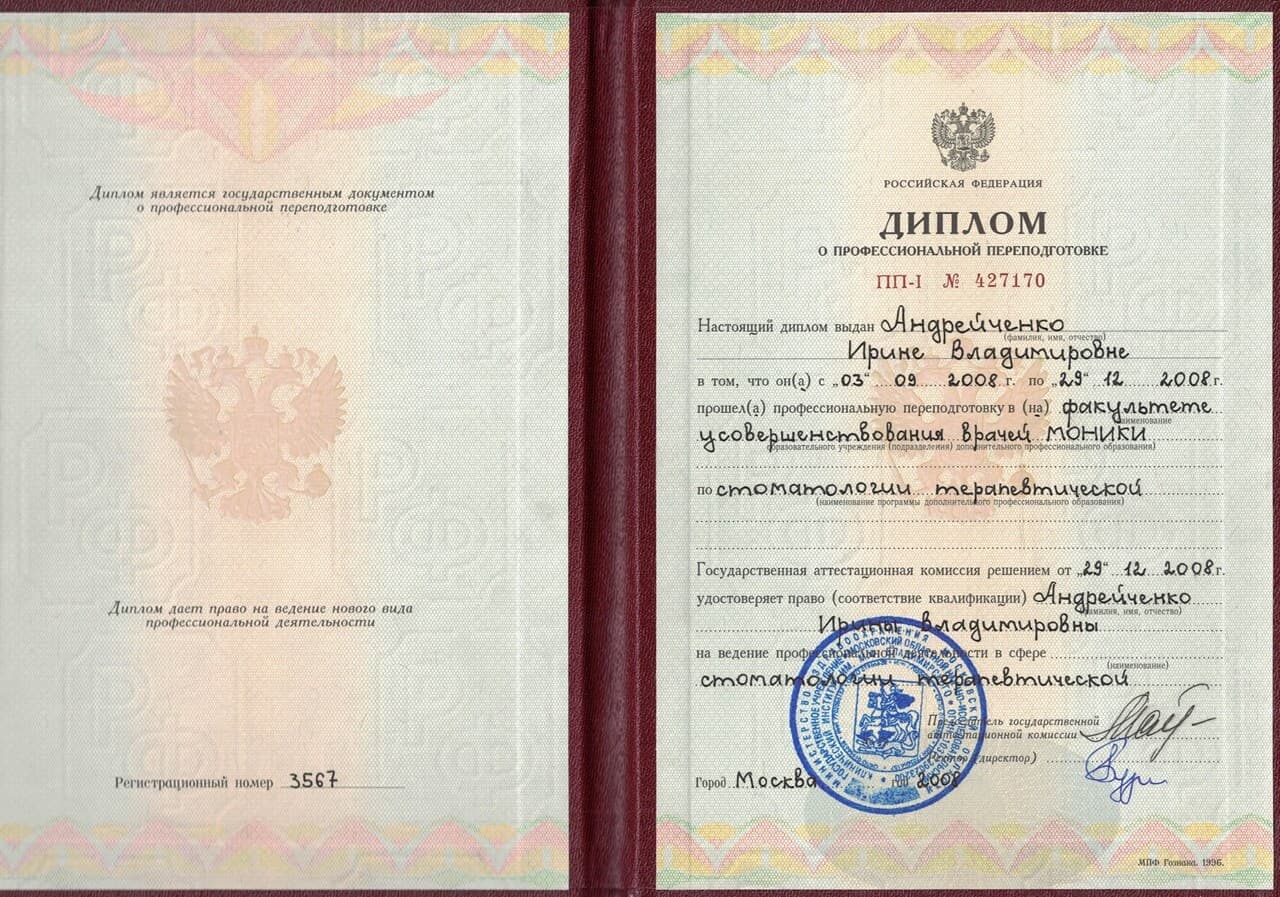 Диплом является государственным документом
о профессиональной переподготовке
Диплом дает право на ведение нового вида
профессиональной деятельности
Регистрационный номер 3567
РОССИЙСКАЯ ФЕДЕРАЦИЯ
ДИПЛОМ
О ПРОФЕССИОНАЛЬНОЙ ПЕРЕПОДГОТОВКЕ
ПП-I № 427170
Настоящий диплом выдан Андрейченко
(фамилия, имя, отчество)
Ирине Владимировне
в том, что он(а) с „03“ 09 2008 г. по „29“ 12 2008 г.
прошел(а) профессиональную переподготовку в (на) факультете
наименование
усовершенствования врачей МОНИКИ
образовательного учреждения (подразделения) дополнительного профессионального образования)
по стоматологии терапевтической
(наименование программы дополнительного профессионального образования)
Государственная аттестационная комиссия решением от „29“ 12 2008 г.
удостоверяет право (соответствие квалификации) Андрейченко
(фамилия, имя, отчество)
Ирины Владимировны
на ведение профессиональной деятельности в сфере
(наименование)
стоматологии терапевтической
Председатель государственной
аттестационной комиссии
Ректор (директор)
Город Москва год 2008
МПФ Гознака. 1996.